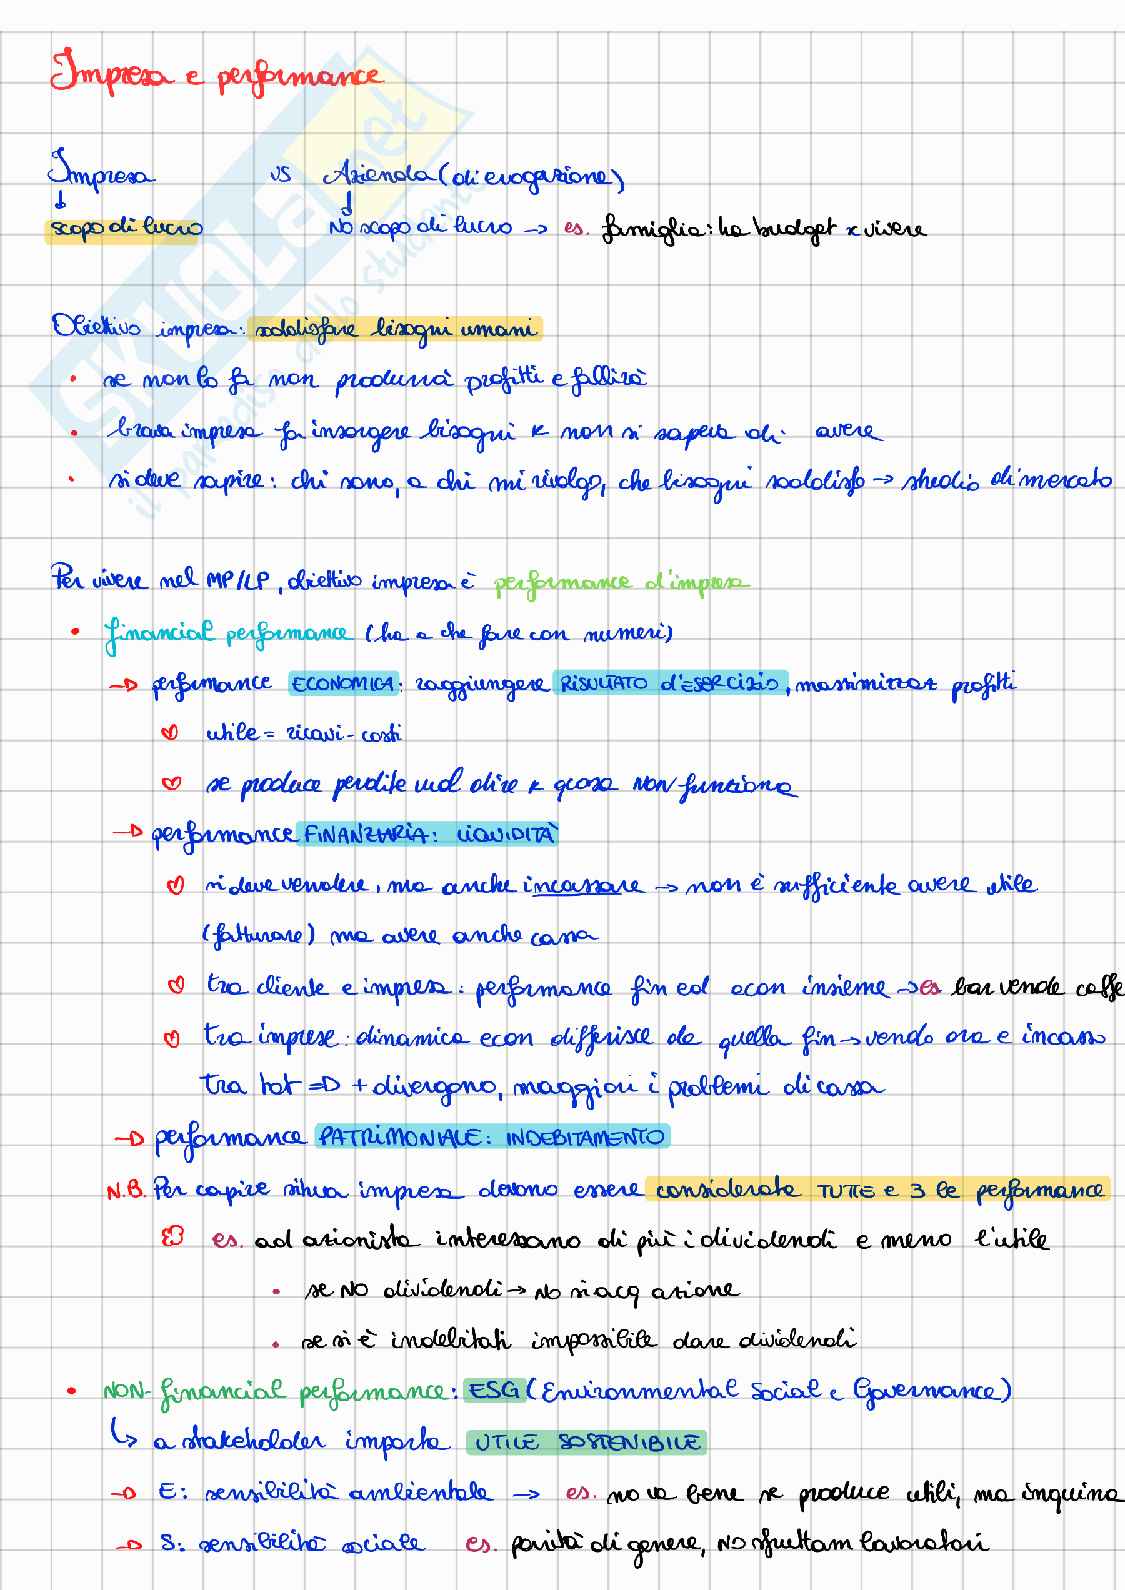 Impresa e performance
Impresa vs Azienda (di erogazione)
scopo di lucro No scopo di lucro → es. famiglia: ha budget x vivere
Obiettivo impresa: soddisfare bisogni umani
• se non lo fa non produrrà profitti e fallirà
• brava impresa fa insorgere bisogni k non si sapeva di avere
• si deve capire: chi sono, a chi mi rivolgo, che bisogni soddisfo → studio di mercato
Per vivere nel MP/LP, obiettivo impresa è performance d'impresa
• financial performance (ha a che fare con numeri)
→ performance ECONOMICA: raggiungere RISULTATO d'ESERCIZIO, massimizzaz profitti
♡ utile = ricavi - costi
♡ se produce perdite vuol dire k qcosa NON funziona
→ performance FINANZIARIA: LIQUIDITÀ
♡ si deve vendere, ma anche incassare → non è sufficiente avere utile
(fatturare) ma avere anche cassa
♡ tra cliente e impresa: performance fin ed econ insieme → es bar vende caffe
♡ tra imprese: dinamica econ differisce da quella fin → vendo ora e incasso
tra tot ⇒ + divergono, maggiori i problemi di cassa
→ performance PATRIMONIALE: INDEBITAMENTO
N.B. Per capire situaz impresa devono essere considerate TUTTE e 3 le performance
es. ad azionista interessano di più i dividendi e meno l'utile
• se NO dividendi → No si acq azione
• se si è indebitati impossibile dare dividendi
• NON-financial performance: ESG (Environmental Social e Governance)
↳ a stakeholder importa UTILE SOSTENIBILE
→ E: sensibilità ambientale → es. no va bene se produce utili, ma inquina
→ S: sensibilità sociale es. parità di genere, NO sfruttam lavoratori
SKUOLA.net
il paradiso dello studente